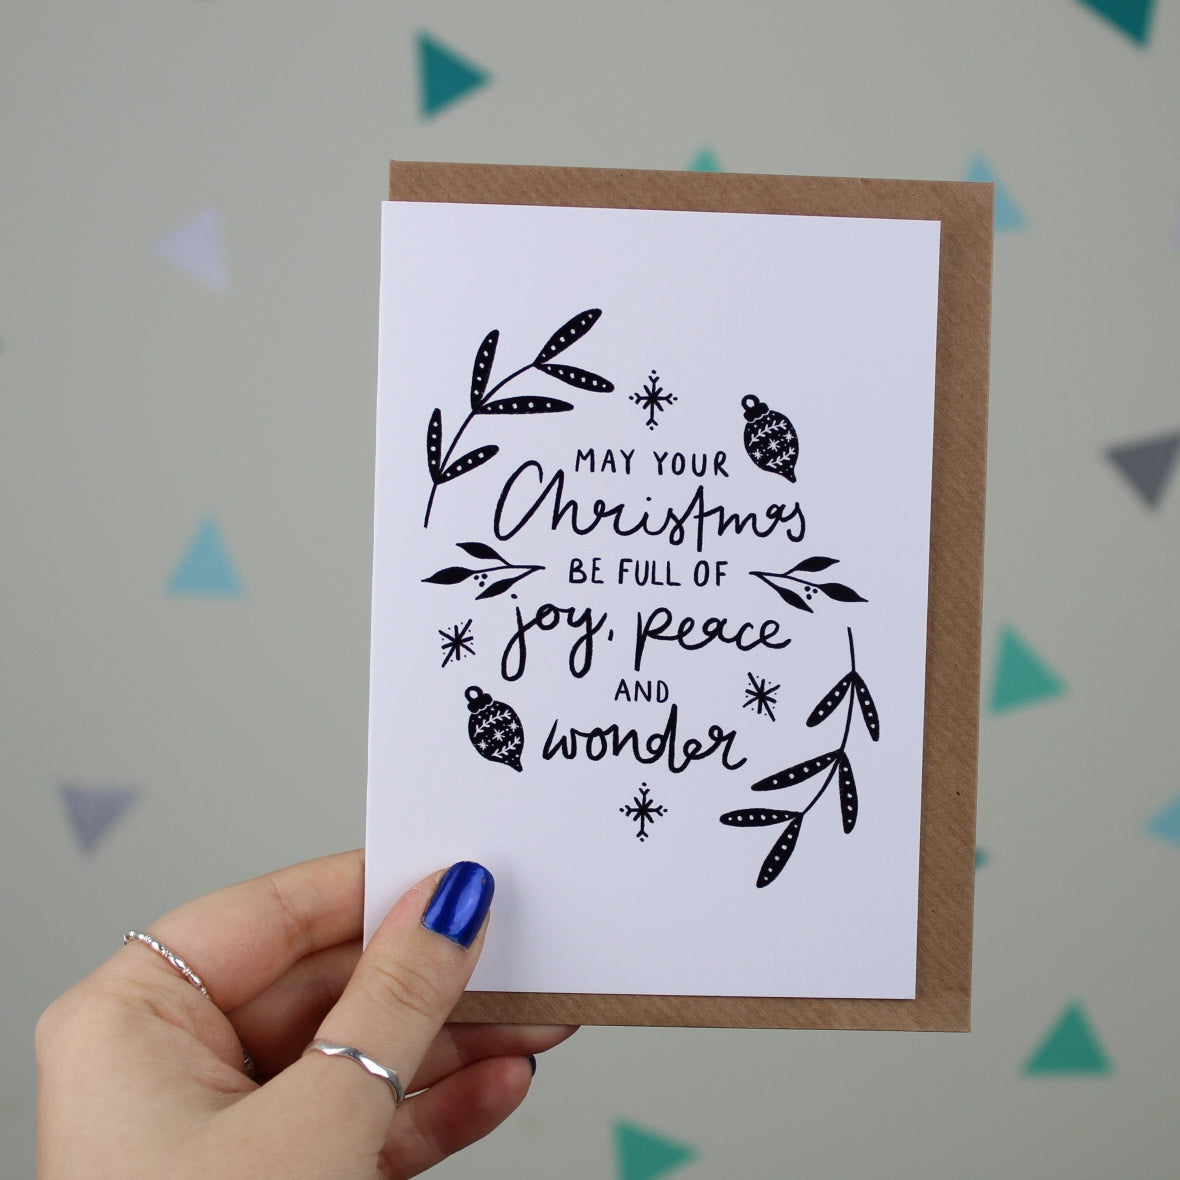 MAY YOUR
Christmas
BE FULL OF
joy, peace
AND
wonder